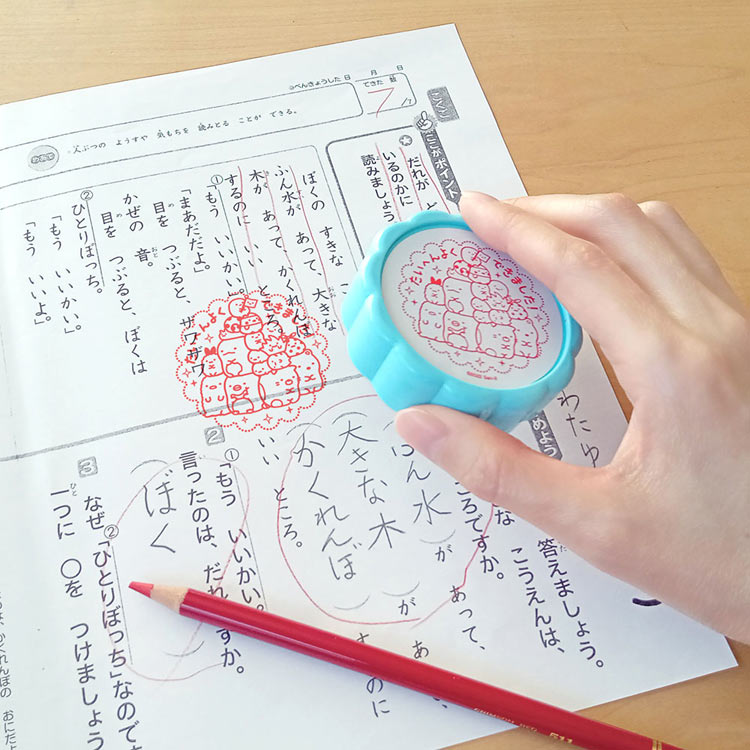 こくご
べんきょうした日 月 日
できた 数
7
/7
めあて
人ぶつの ようすや 気もちを 読みとる ことが できる。
ここがポイント
だれが
いるのかに
読みましょう
ぼくの すきな
ふん水が あって、大きな
木が あって、かくれんぼ
するのに いい ところ。
①「もう いいかい」。
「まあだだよ」。
目を つぶると、ザワザワ
かぜの 音。
目を つぶると、ぼくは
②ひとりぼっち。
「もう いいかい。」
「もう いいよ」。
たいへんよく
できました
へんよく
できま
めよう
わたゆ
答えましょう。
こうえんは、
ころですか。
ん水 が あって、
大きな木 が あ
かくれんぼ するのに
いい ところ。
2
①「もう いいかい。」
言ったのは、だれ
ですか。
ぼく
3
なぜ②「ひとりぼっち」なので
一つに ○を つけましょう
かくれんぼの おにだよ